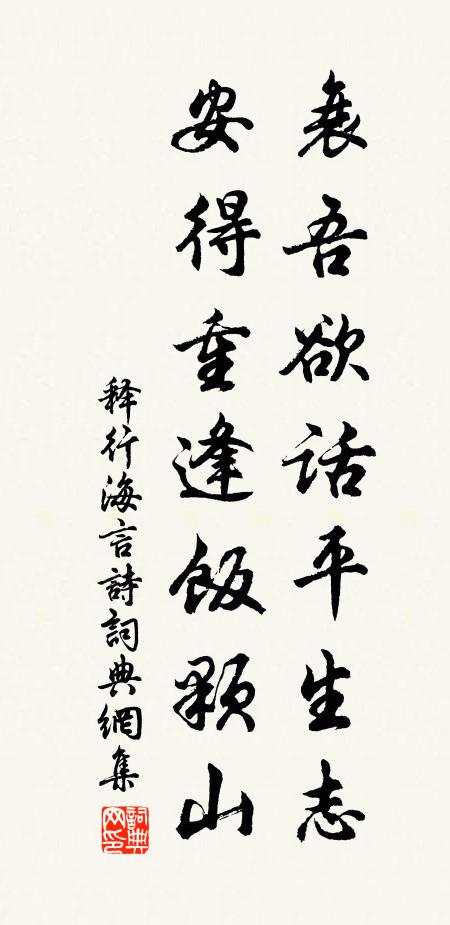 衰吾欲話平生志
安得重逢飯顆山
释行海言詩詞典網集
詞典網印